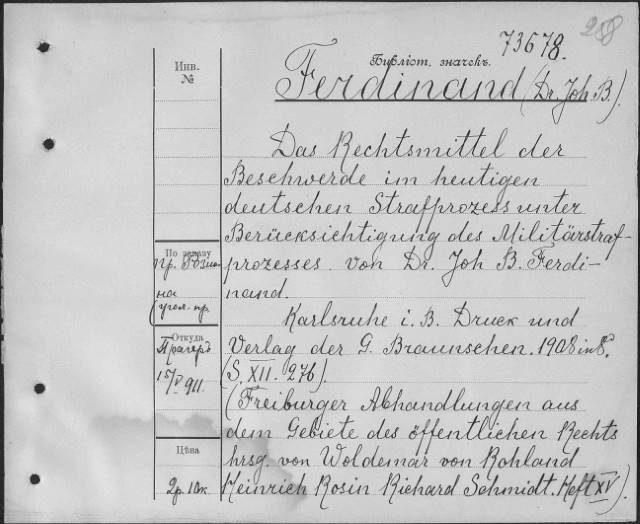 258
73678.
Библіот. значекъ.
Инв.
№
Ferdinand (Dr. Joh. B.).
Das Rechtsmittel der
Beschwerde im heutigen
deutschen Strafprozess unter
Berücksichtigung des Militärstraf-
prozesses von Dr. Joh B. Ferdi-
nand.
Karlsruhe i. B. Druck und
Verlag der G. Braunschen. 1908 in 8°
(S. XII. 276).
(Freiburger Abhandlungen aus
dem Gebiete des öffentlichen Rechts
hrsg. von Woldemar von Rohland
Heinrich Rosin Richard Schmidt. Heft XV)
По заказу
пр. Розин
на
(угол. пр.
Откуда
Прагеръ
15/V 911.
Цѣна
2р. 10к